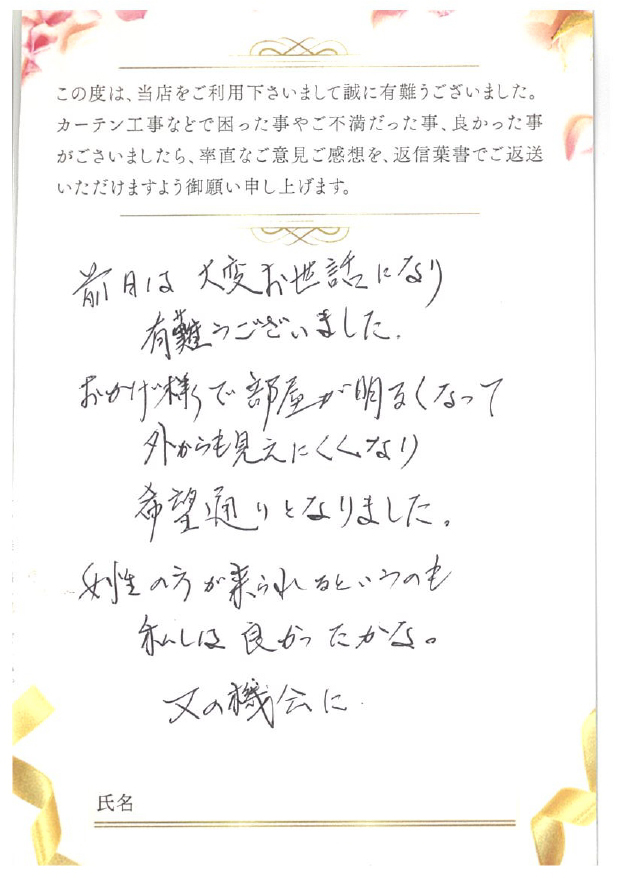 この度は、当店をご利用下さいまして誠に有難うございました。
カーテン工事などで困った事やご不満だった事、良かった事
がございましたら、率直なご意見ご感想を、返信葉書でご返送
いただけますよう御願い申し上げます。
前日は 大変お世話になり
有難うございました.
おかげ様で部屋が明るくなって
外からも見えにくくなり
希望通りとなりました。
女性の方が来られるというのも
私しは良かったかな。
又の機会に
氏名